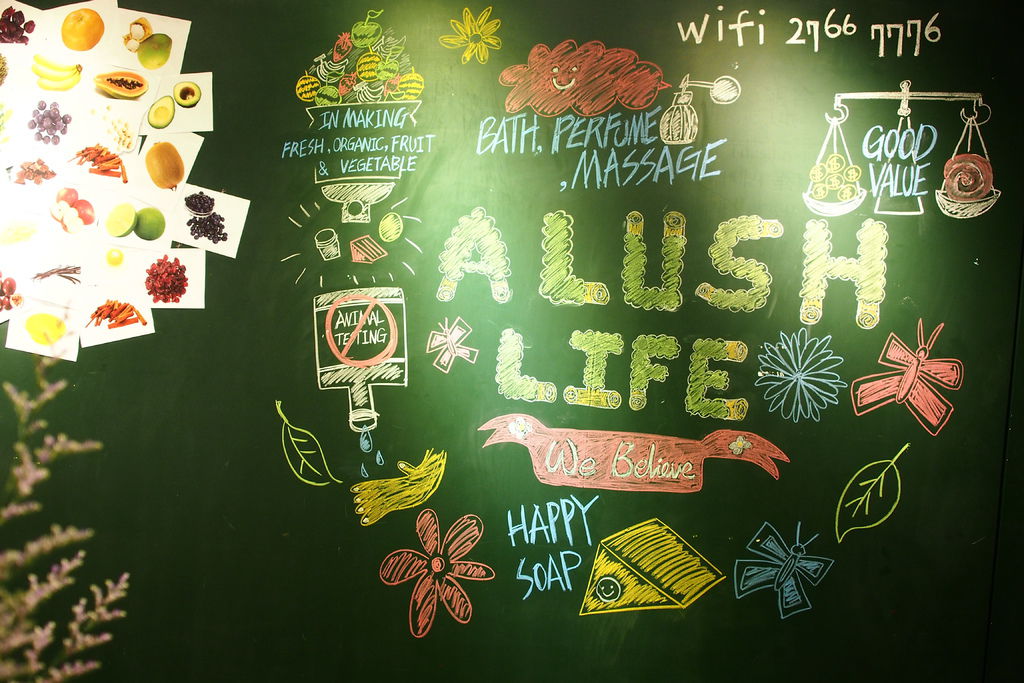 wifi 2766 7776
IN MAKING
FRESH, ORGANIC, FRUIT
& VEGETABLE
BATH, PERFUME
, MASSAGE
GOOD
VALUE
A LUSH
LIFE
ANIMAL
TESTING
We Believe
HAPPY
SOAP